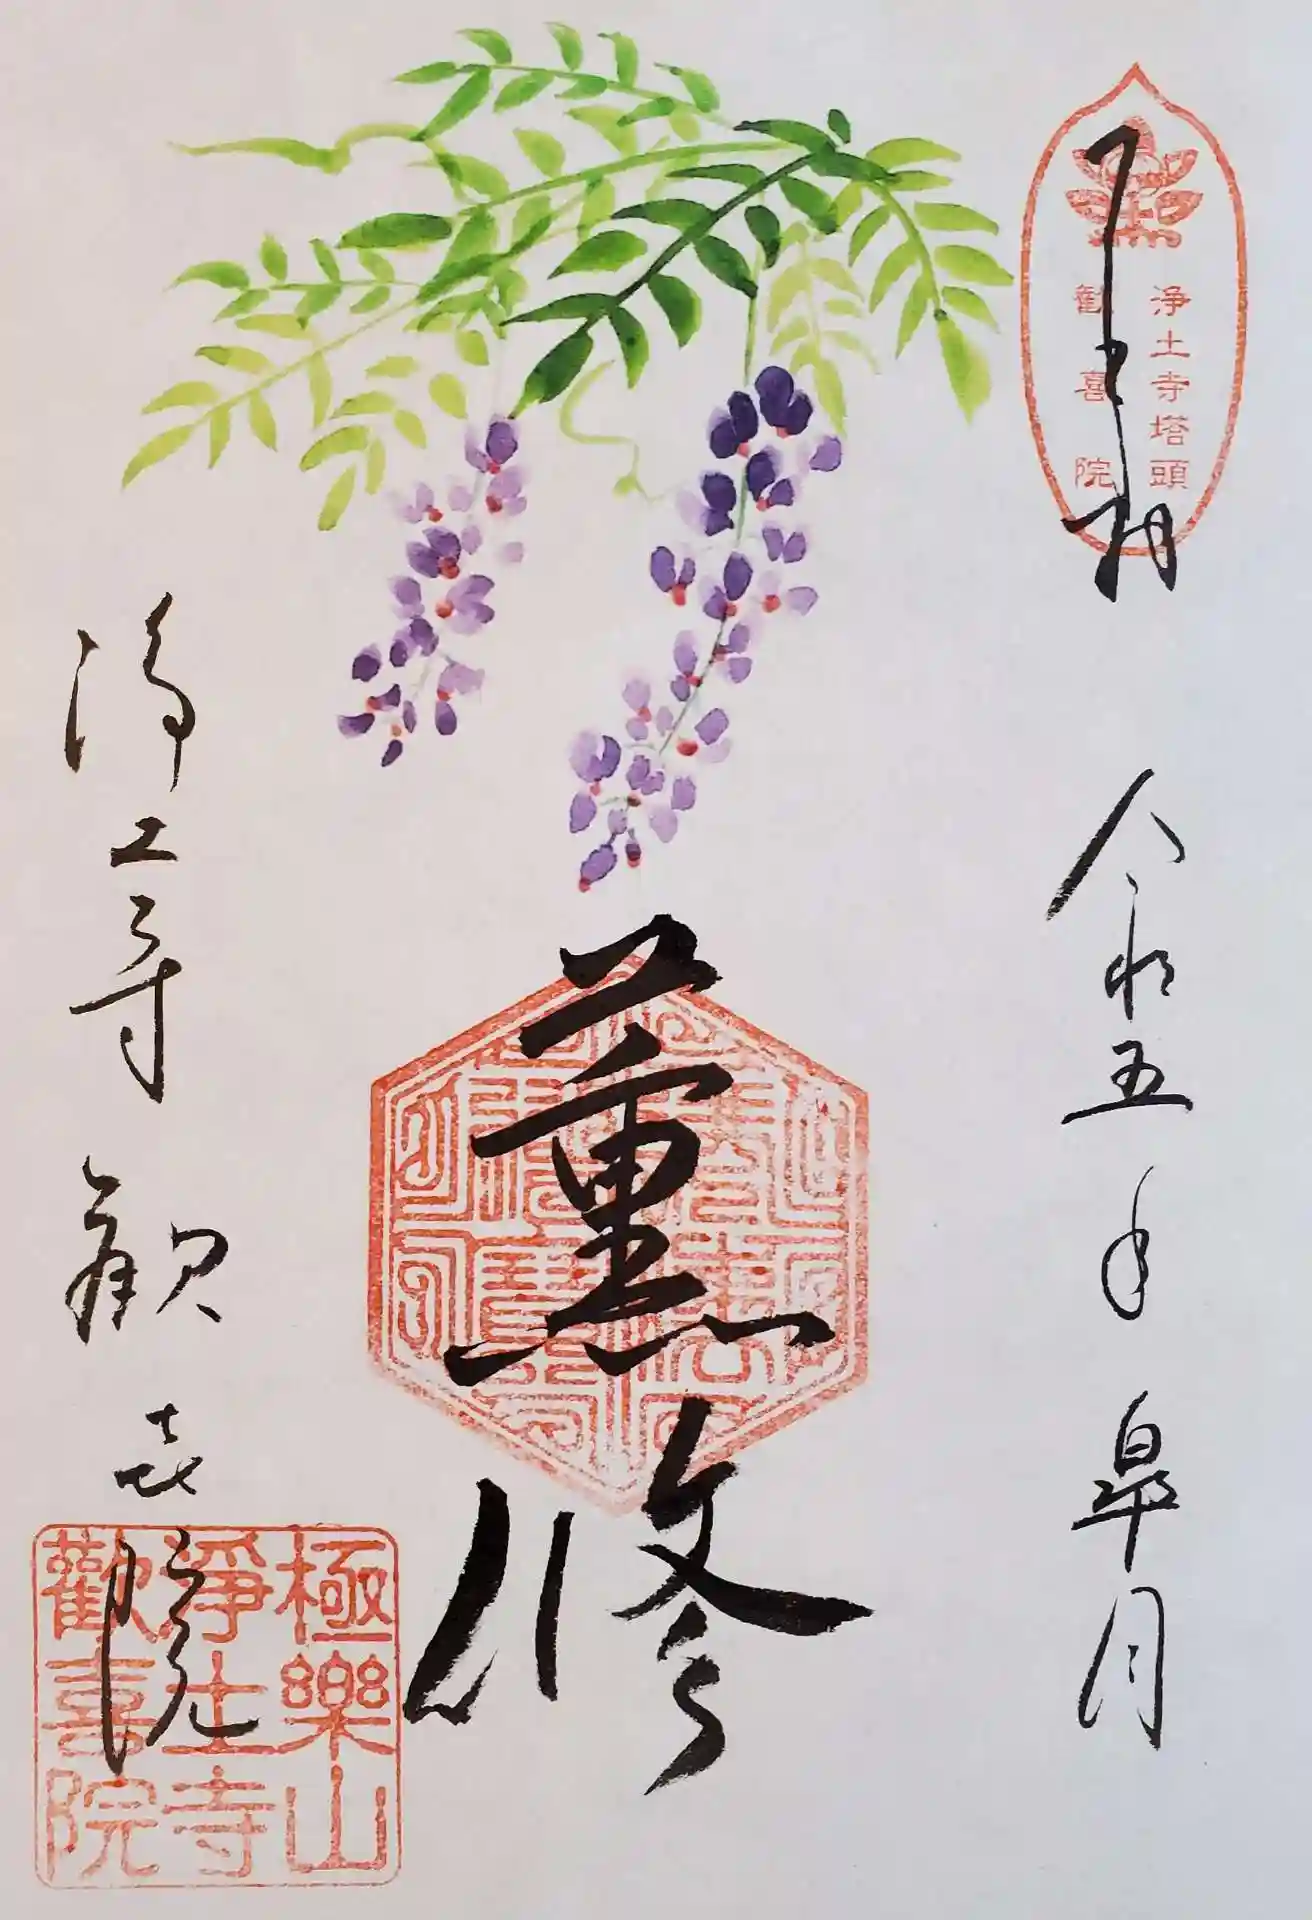 奉拝
浄土寺塔頭
歓喜院
令和五年皐月
薫修
浄土寺歓喜院
極樂山
淨土寺
歡喜院